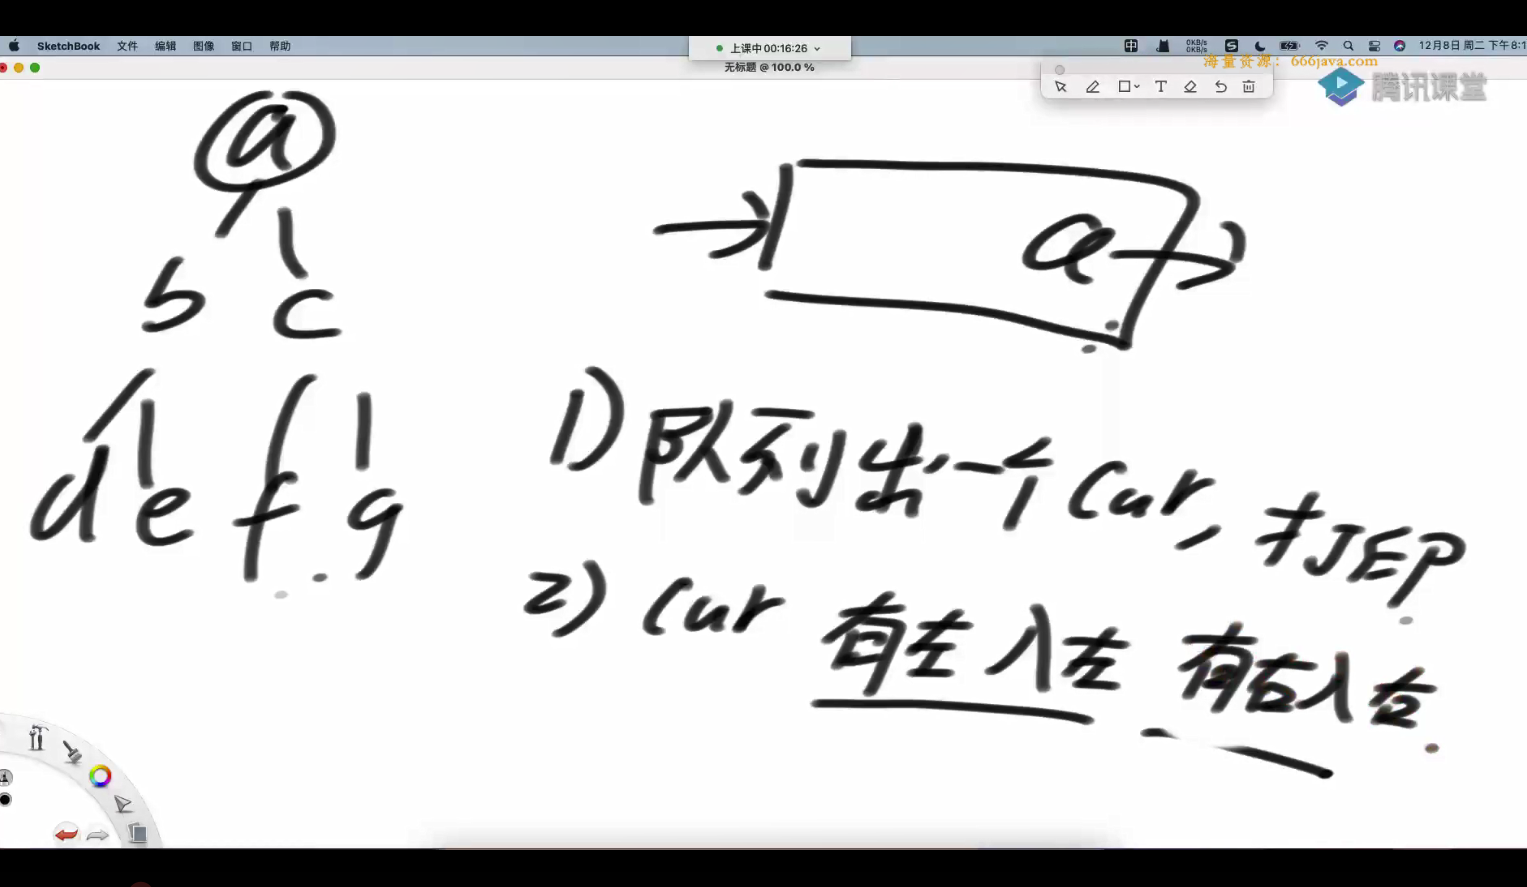 SketchBook 文件 编辑 图像 窗口 帮助
上课中 00:16:26
0KB/s
0KB/s
12月8日 周二 下午8:1
无标题 @ 100.0 %
海量资源：666java.com
腾讯课堂
a
b c
d e f g
a
1) 队列出一个cur, 打印
2) cur 有左入左 有右入右